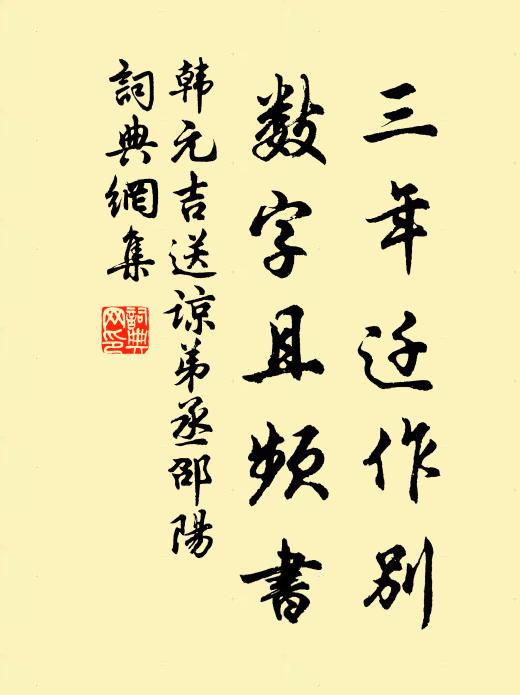 三年近作别
数字且频書
韩元吉送谅弟丞邵陽
詞典網集
詞典
网印